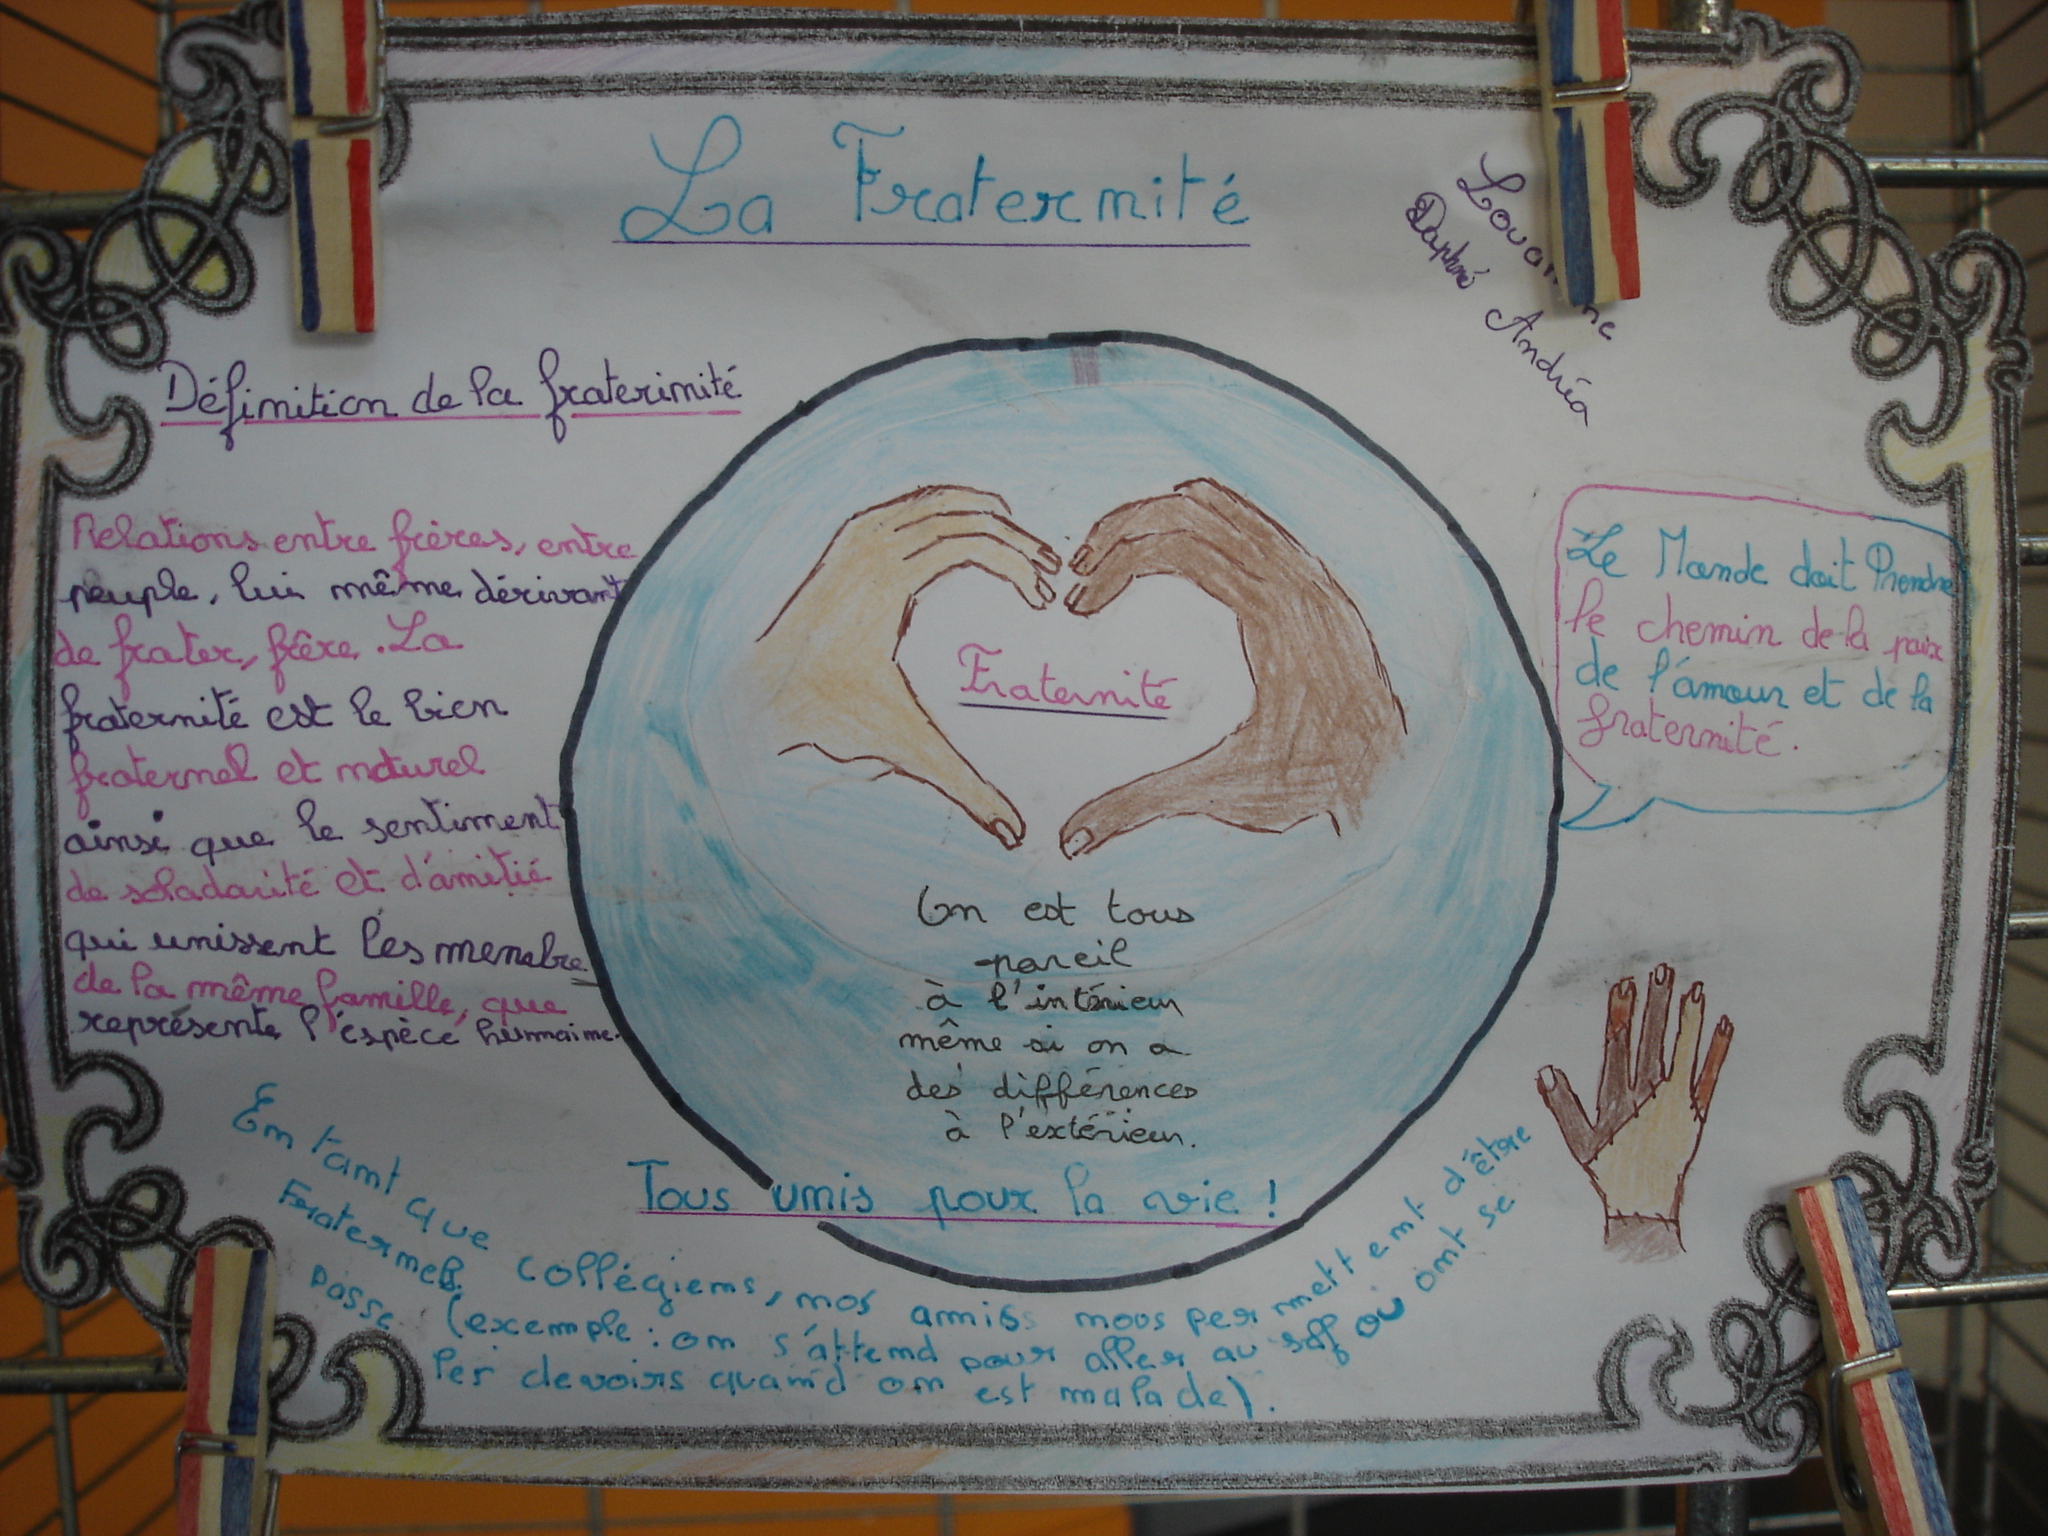 La Fraternité
Daphné Andréa
Définition de la fraterinité
Relations entre frères, entre
peuple, lui même dérivant
de frater, frère. La
fraternité est le lien
fraternel et naturel
ainsi que le sentiment
de soladarité et d'amitié
qui unissent les menebre
de la même famille, que
représente l'espèce humaine.
Fraternité
On est tous
pareil
à l'intérieur
même si on a
des différences
à l'extérieur.
Tous unis pour la vie !
Le Monde doit Prendre
le chemin de la paix
de l'amour et de la
fraternité.
En tant que collégiens, nos amies nous permettent d'être
Fraternels. (exemple : on s'attend pour aller au self où ont se
passe les devoirs quand on est malade).